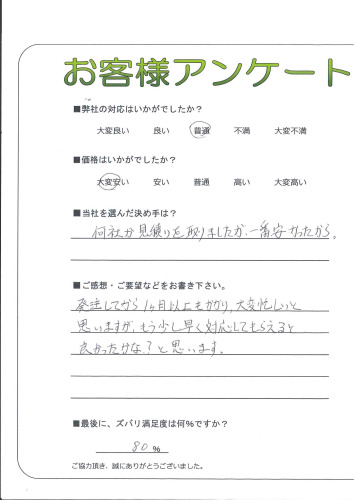 お客様アンケート
■弊社の対応はいかがでしたか？
大変良い 良い 普通 不満 大変不満
■価格はいかがでしたか？
大変安い 安い 普通 高い 大変高い
■当社を選んだ決め手は？
何社か見積りを取りましたが、一番安かったから。
■ご感想・ご要望などをお書き下さい。
発注してから1ヶ月以上もかかり、大変忙しいと
思いますが、もう少し早く対応してもらえると
良かったかな？と思います。
■最後に、ズバリ満足度は何％ですか？
80 ％
ご協力頂き、誠にありがとうございました。